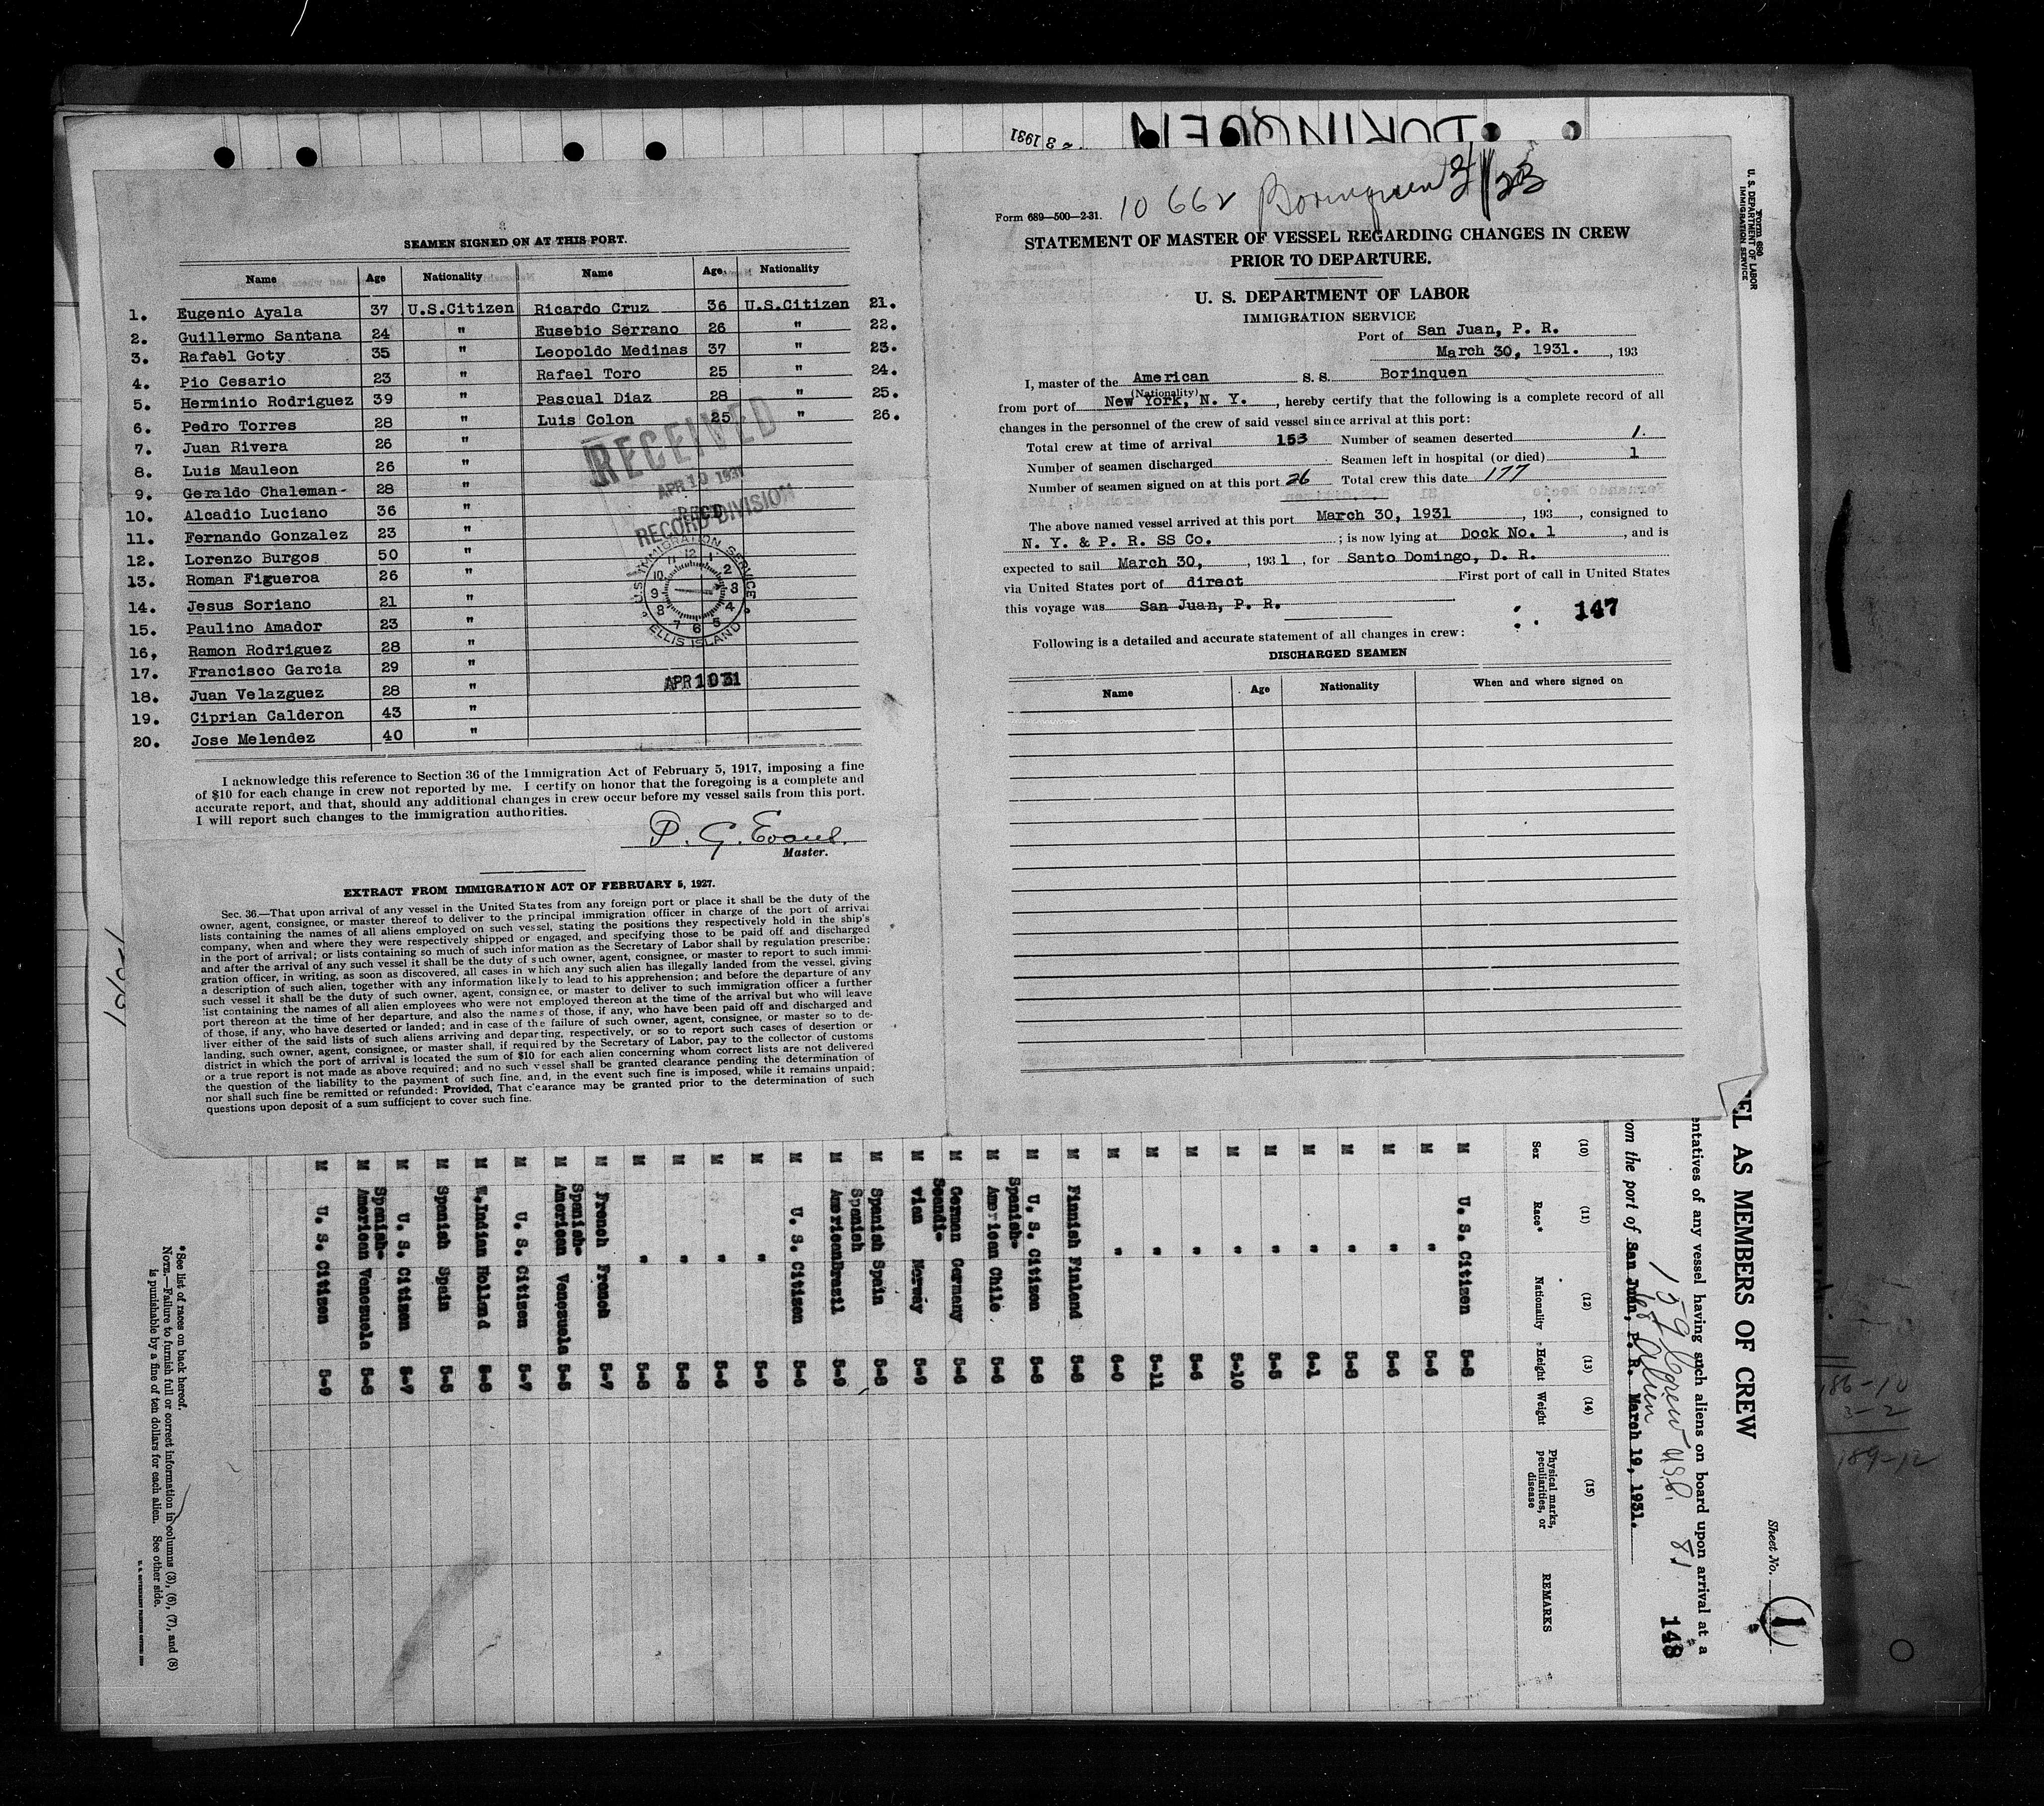 BORINQUEN
3 1931
3
SEAMEN SIGNED ON AT THIS PORT.
Name Age Nationality Name Age Nationality
1. Eugenio Ayala 37 U.S.Citizen Ricardo Cruz 36 U.S.Citizen 21.
2. Guillermo Santana 24 " Eusebio Serrano 26 " 22.
3. Rafael Goty 35 " Leopoldo Medinas 37 " 23.
4. Pio Cesario 23 " Rafael Toro 25 " 24.
5. Herminio Rodriguez 39 " Pascual Diaz 28 " 25.
6. Pedro Torres 28 " Luis Colon 25 " 26.
7. Juan Rivera 26 "
8. Luis Mauleon 26 "
9. Geraldo Chaleman- 28 "
10. Alcadio Luciano 36 "
11. Fernando Gonzalez 23 "
12. Lorenzo Burgos 50 "
13. Roman Figueroa 26 "
14. Jesus Soriano 21 "
15. Paulino Amador 23 "
16. Ramon Rodriguez 28 "
17. Francisco Garcia 29 "
18. Juan Velazguez 28 "
19. Ciprian Calderon 43 "
20. Jose Melendez 40 "
RECEIVED
APR 10 1931
RECORD DIVISION
REC'D
U.S. IMMIGRATION SERVICE
12 1 2 3 4 5 6 7 8 9 10 11
ELLIS ISLAND
APR 10 31
I acknowledge this reference to Section 36 of the Immigration Act of February 5, 1917, imposing a fine
of $10 for each change in crew not reported by me. I certify on honor that the foregoing is a complete and
accurate report, and that, should any additional changes in crew occur before my vessel sails from this port.
I will report such changes to the immigration authorities.
P. G. Evans.
Master.
EXTRACT FROM IMMIGRATION ACT OF FEBRUARY 5, 1927.
Sec. 36.—That upon arrival of any vessel in the United States from any foreign port or place it shall be the duty of the
owner, agent, consignee, or master thereof to deliver to the principal immigration officer in charge of the port of arrival
lists containing the names of all aliens employed on such vessel, stating the positions they respectively hold in the ship's
company, when and where they were respectively shipped or engaged, and specifying those to be paid off and discharged
in the port of arrival; or lists containing so much of such information as the Secretary of Labor shall by regulation prescribe;
and after the arrival of any such vessel it shall be the duty of such owner, agent, consignee, or master to report to such immi-
gration officer, in writing, as soon as discovered, all cases in which any such alien has illegally landed from the vessel, giving
a description of such alien, together with any information likely to lead to his apprehension; and before the departure of any
such vessel it shall be the duty of such owner, agent, consignee, or master to deliver to such immigration officer a further
list containing the names of all alien employees who were not employed thereon at the time of the arrival but who will leave
port thereon at the time of her departure, and also the names of those, if any, who have been paid off and discharged and
of those, if any, who have deserted or landed; and in case of the failure of such owner, agent, consignee, or master so to de-
liver either of the said lists of such aliens arriving and departing, respectively, or so to report such cases of desertion or
landing, such owner, agent, consignee, or master shall, if required by the Secretary of Labor, pay to the collector of customs
district in which the port of arrival is located the sum of $10 for each alien concerning whom correct lists are not delivered
or a true report is not made as above required; and no such vessel shall be granted clearance pending the determination of
the question of the liability to the payment of such fine, and, in the event such fine is imposed, while it remains unpaid;
nor shall such fine be remitted or refunded: Provided, That clearance may be granted prior to the determination of such
questions upon deposit of a sum sufficient to cover such fine.
10 662 Borinquen
Form 689—500—2-31.
STATEMENT OF MASTER OF VESSEL REGARDING CHANGES IN CREW
PRIOR TO DEPARTURE.
U. S. DEPARTMENT OF LABOR
IMMIGRATION SERVICE
Port of San Juan, P. R.
March 30, 1931. , 193
I, master of the American S. S. Borinquen
(Nationality)
from port of New York, N. Y. , hereby certify that the following is a complete record of all
changes in the personnel of the crew of said vessel since arrival at this port:
Total crew at time of arrival 153 Number of seamen deserted 1.
Number of seamen discharged Seamen left in hospital (or died) 1
Number of seamen signed on at this port 26 Total crew this date 177
The above named vessel arrived at this port March 30, 1931 , 193 , consigned to
N. Y. & P. R. SS Co. ; is now lying at Dock No. 1 , and is
expected to sail March 30, , 1931, for Santo Domingo, D. R.
via United States port of direct First port of call in United States
this voyage was San Juan, P. R.
147
Following is a detailed and accurate statement of all changes in crew:
DISCHARGED SEAMEN
Name Age Nationality When and where signed on
Form 680
U. S. DEPARTMENT OF LABOR
IMMIGRATION SERVICE
Sheet No. 1
EL AS MEMBERS OF CREW
entatives of any vessel having such aliens on board upon arrival at a
159 Crew USC. 81
148
om the port of San Juan, P. R. March 19, 1931.
(10) (11) (12) (13) (14) (15)
Sex Race* Nationality Height Weight Physical marks, peculiarities, or disease REMARKS
M U. S. Citizen 5-8
M " 5-6
M " 5-6
M " 5-8
M " 6-1
M " 5-5
M " 5-10
M " 5-6
M " 5-11
M " 6-0
M Finnish Finland 5-8
M U. S. Citizen 5-8
M Spanish-American Chile 5-6
M German Germany 5-6
M Scandi-vian Norway 5-9
M Spanish Spain 5-8
M Spanish American Brazil 5-9
M U. S. Citizen 5-6
M " 5-9
M " 5-6
M " 5-8
M " 5-8
M French French 5-7
M Spanish-American Venezuela 5-5
M U. S. Citizen 5-7
M W.Indian Holland 5-8
M Spanish Spain 5-5
M U. S. Citizen 5-7
M Spanish-American Venezuela 5-8
M U. S. Citizen 5-9
*See list of races on back hereof.
NOTE.—Failure to furnish full or correct information in columns (3), (6), (7), and (8)
is punishable by a fine of ten dollars for each alien. See other side.
186-10
3-2
189-12